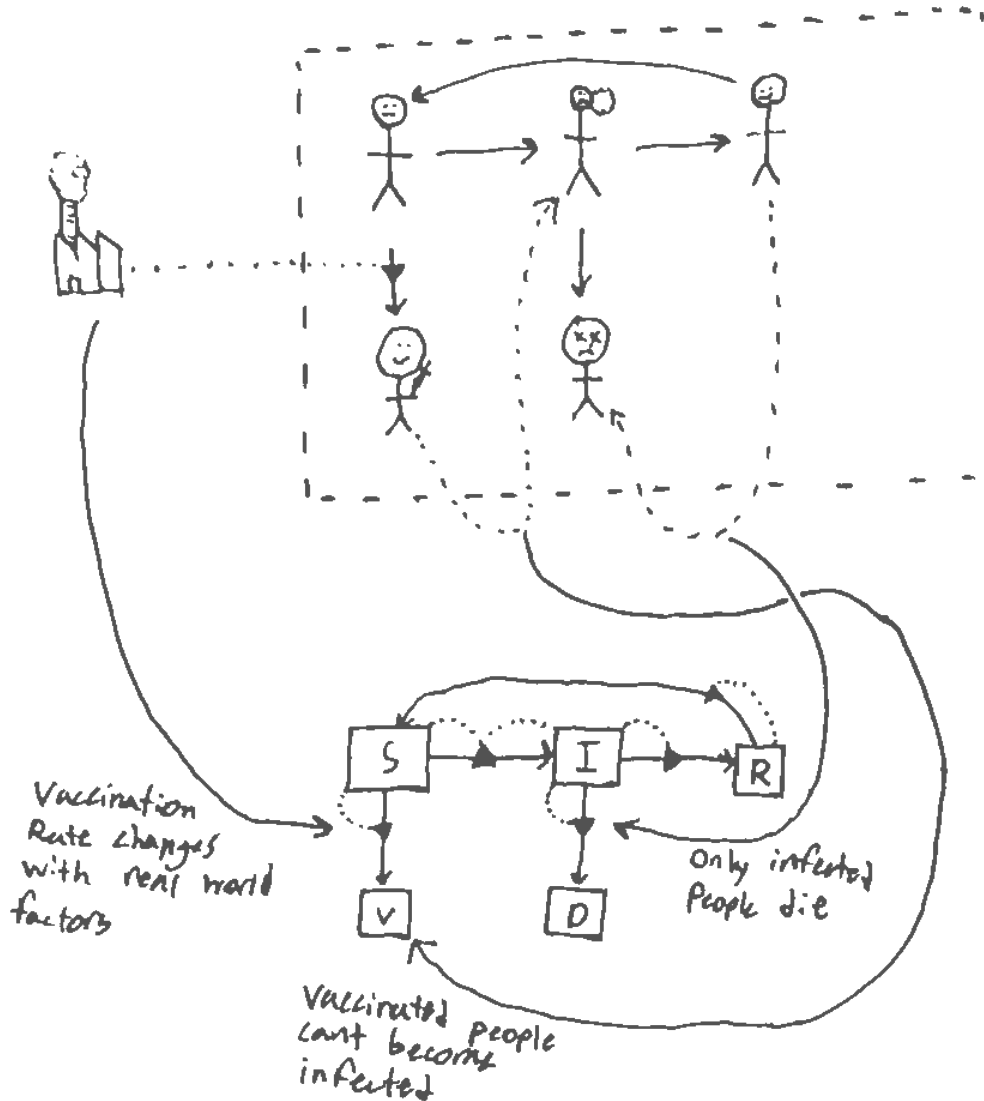 S
I
R
V
D
Vaccination
Rate changes
with real world
factors
Only infected
People die
Vaccinated People
cant become
infected